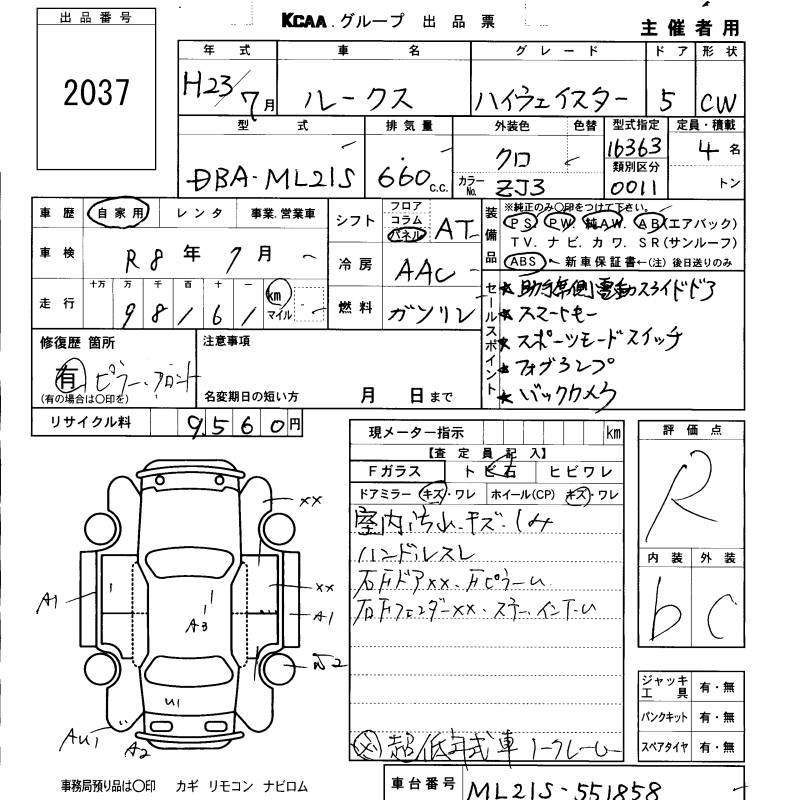 出品番号
2037
KCAA.グループ 出品票
主催者用
年式 車名 グレード ドア 形状
H23/7月 ルークス ハイウェイスター 5 CW
型式 排気量 外装色 色替 型式指定 定員・積載
DBA-ML21S 660c.c. クロ 16363 4名
カラーNo. ZJ3 類別区分 0011 トン
車歴 自家用 レンタ 事業.営業車
車検 R8年7月
走行 十万 万 千 百 十 一 km マイル
98161
シフト フロア コラム パネル AT
冷房 AAC
燃料 ガソリン
装備品
※純正のみ○印をつけて下さい。
PS. PW. 純AW. AB(エアバック)
TV. ナビ. カワ. SR(サンルーフ)
ABS 新車保証書←(注)後日送りのみ
セールスポイント
★助手席側電動スライドドア
★スマートキー
★スポーツモードスイッチ
★フォグランプ
★バックカメラ
修復歴 箇所
有 ピラー、フロント
(有の場合は○印を)
注意事項
名変期日の短い方 月 日まで
リサイクル料 9560円
現メーター指示 km
【査定員記入】
Fガラス トビ石 ヒビワレ
ドアミラー キズ・ワレ ホイール(CP) キズ・ワレ
室内汚れ.キズ.しみ
ハンドルスレ
右Fドアxx.Fピラーu
右Fフェンダーxx.ステー.インナーu
超低年式車ノークレーム
評価点
R
内装 外装
b C
xx
xx
A1
A1
A3
U1
AU1
A2
ジャッキ工具 有・無
パンクキット 有・無
スペアタイヤ 有・無
事務局預り品は○印 カギ リモコン ナビロム
車台番号 ML21S-551858